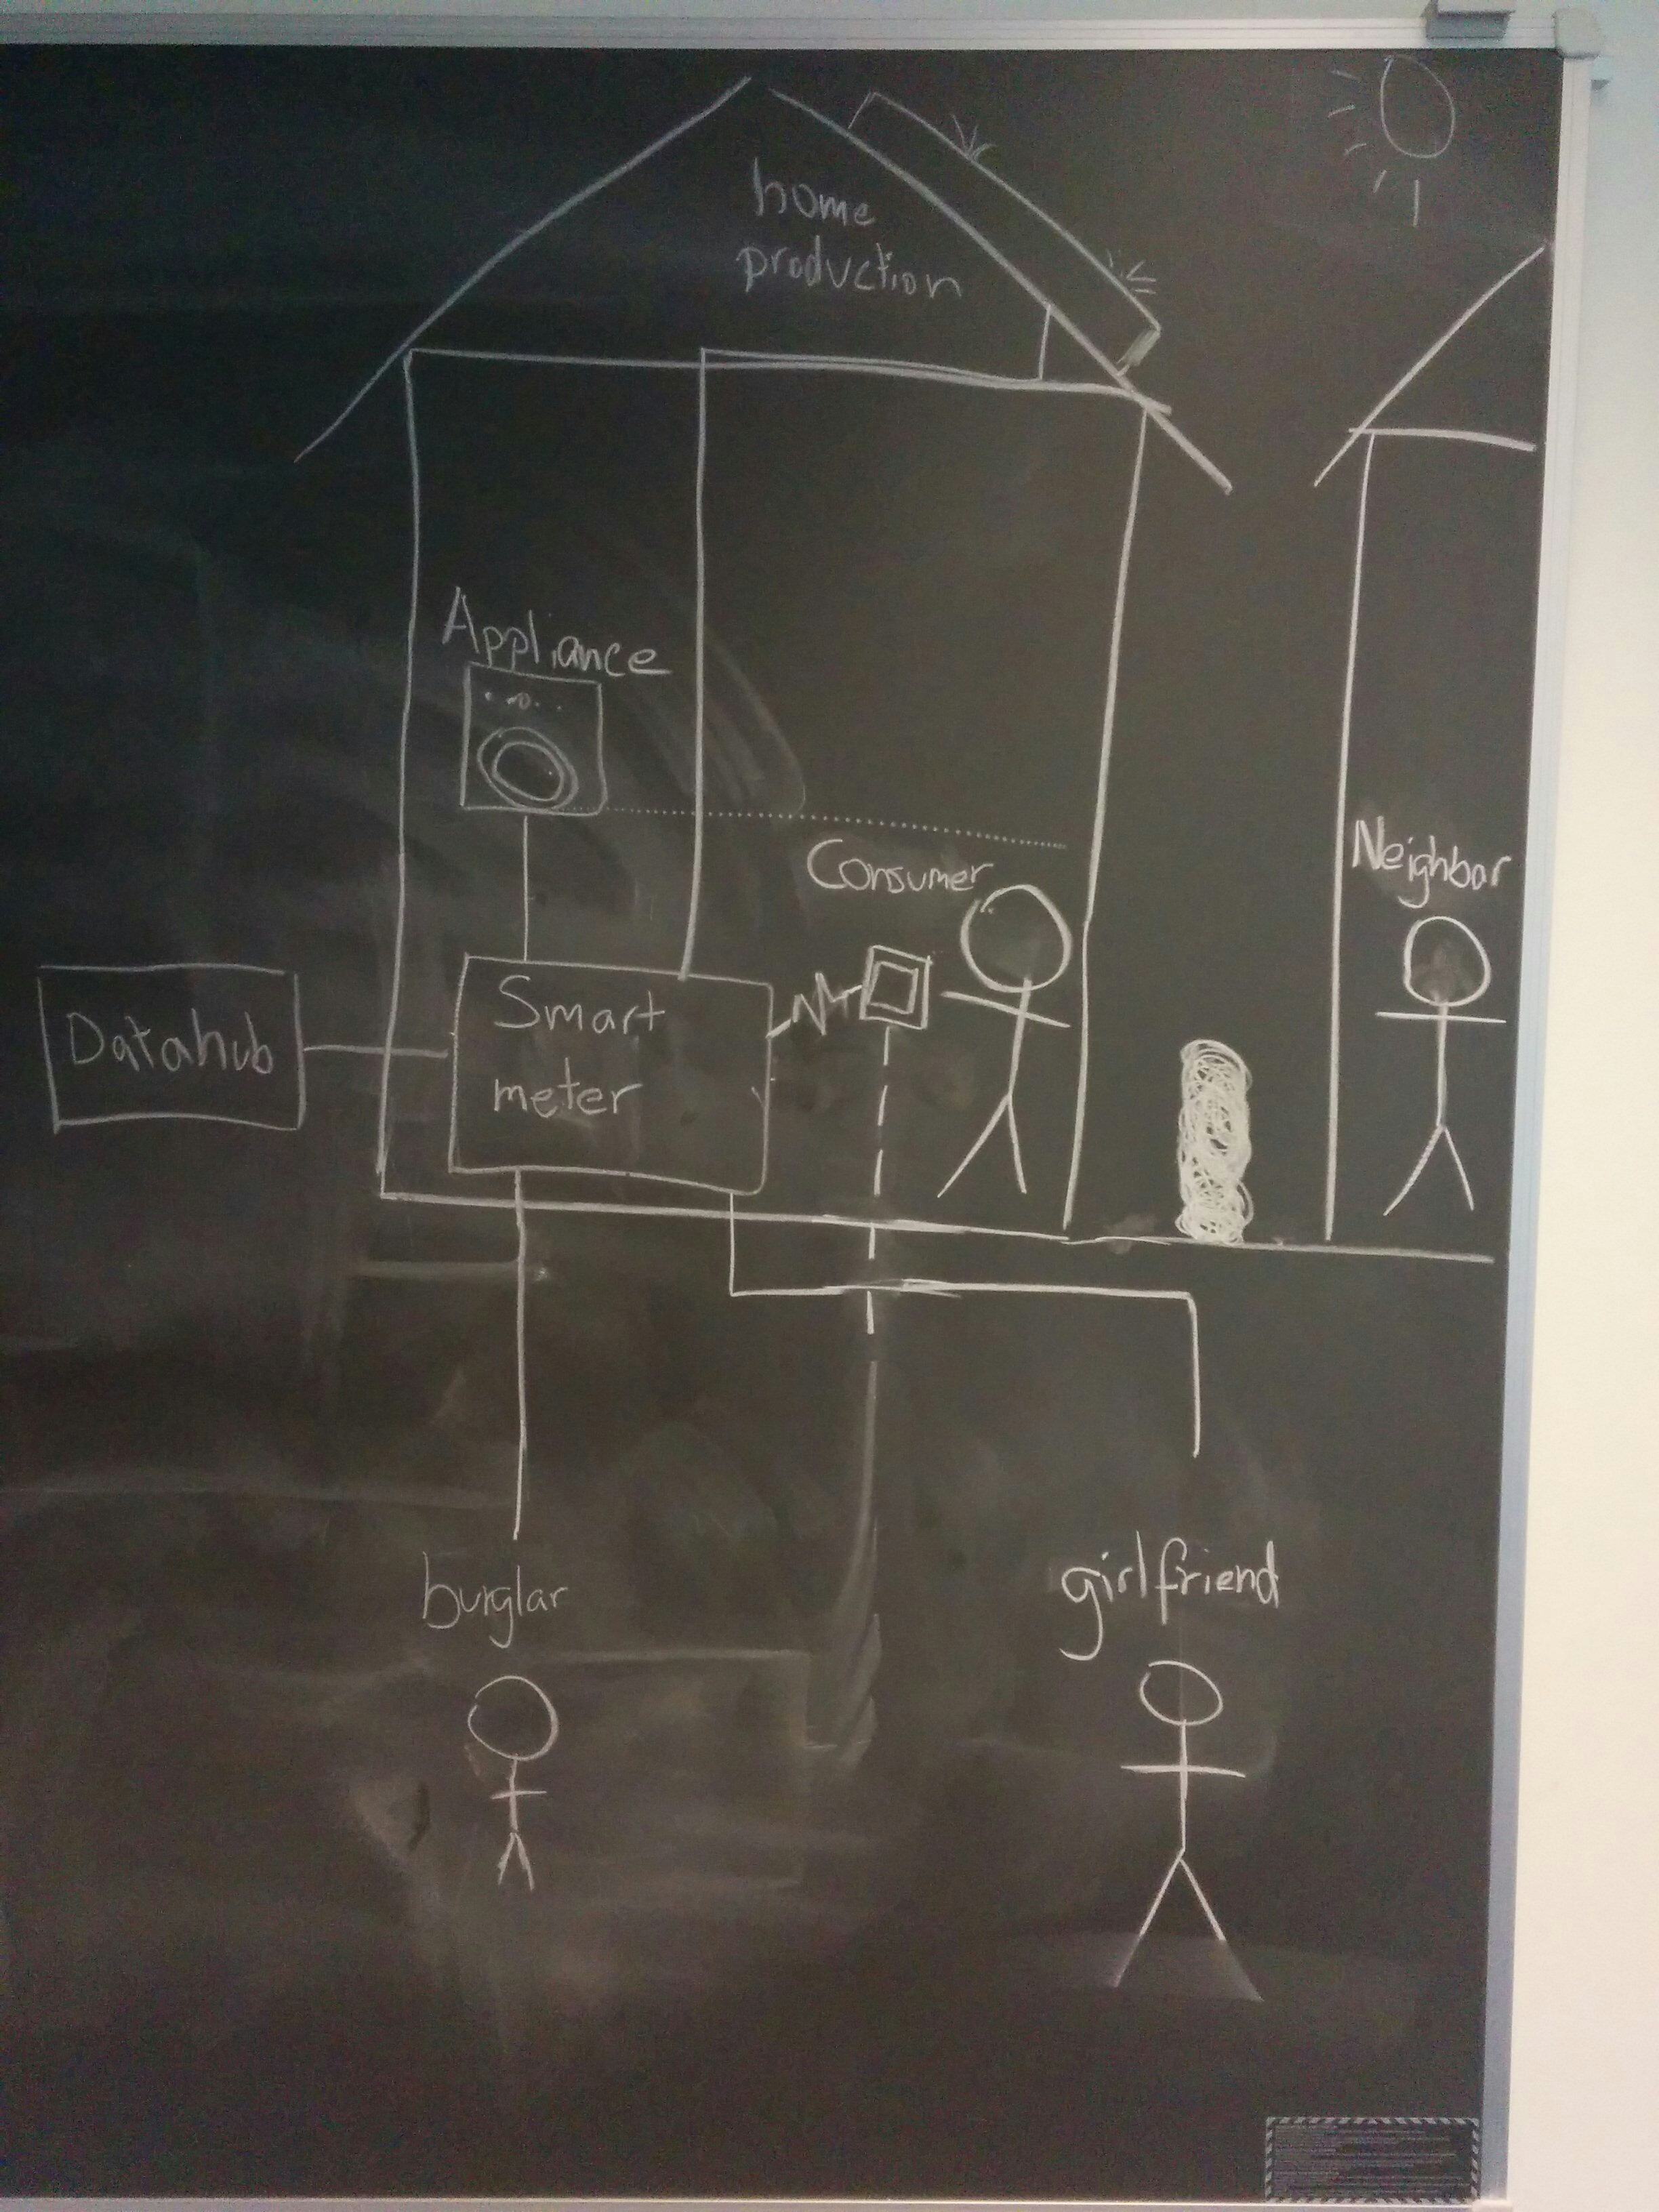 home
production
Appliance
Consumer
Neighbor
Datahub
Smart
meter
burglar
girlfriend